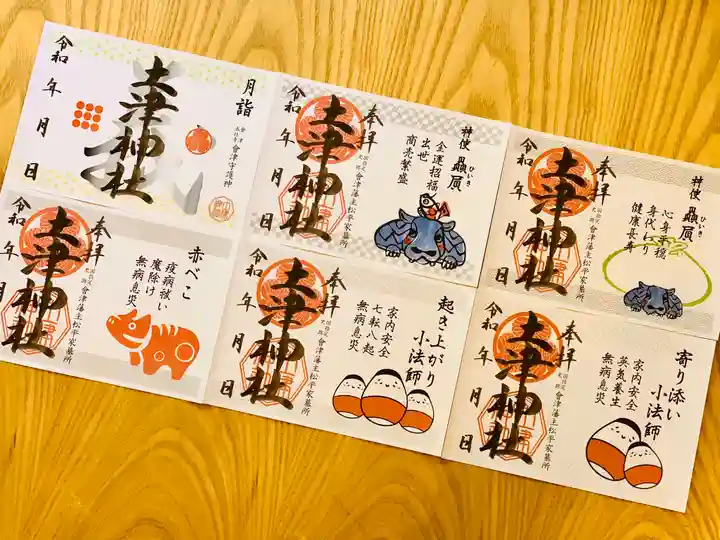 月詣
會津
會津守護神
土津神社
令和 年 月 日
奉拝
神使 贔屓
ひいき
金運招福
出世
商売繁盛
國指定
史跡
會津藩主松平家墓所
土津神社
令和 年 月 日
奉拝
神使 贔屓
ひいき
心身平穏
身代わり
健康長寿
國指定
史跡
會津藩主松平家墓所
土津神社
令和 年 月 日
奉拝
赤べこ
疫病祓い
魔除け
無病息災
國指定
史跡
會津藩主松平家墓所
土津神社
令和 年 月 日
奉拝
起き上がり
小法師
家内安全
七転八起
無病息災
國指定
史跡
會津藩主松平家墓所
土津神社
令和 年 月 日
奉拝
寄り添い
小法師
家内安全
英気養生
無病息災
國指定
史跡
會津藩主松平家墓所
土津神社
令和 年 月 日